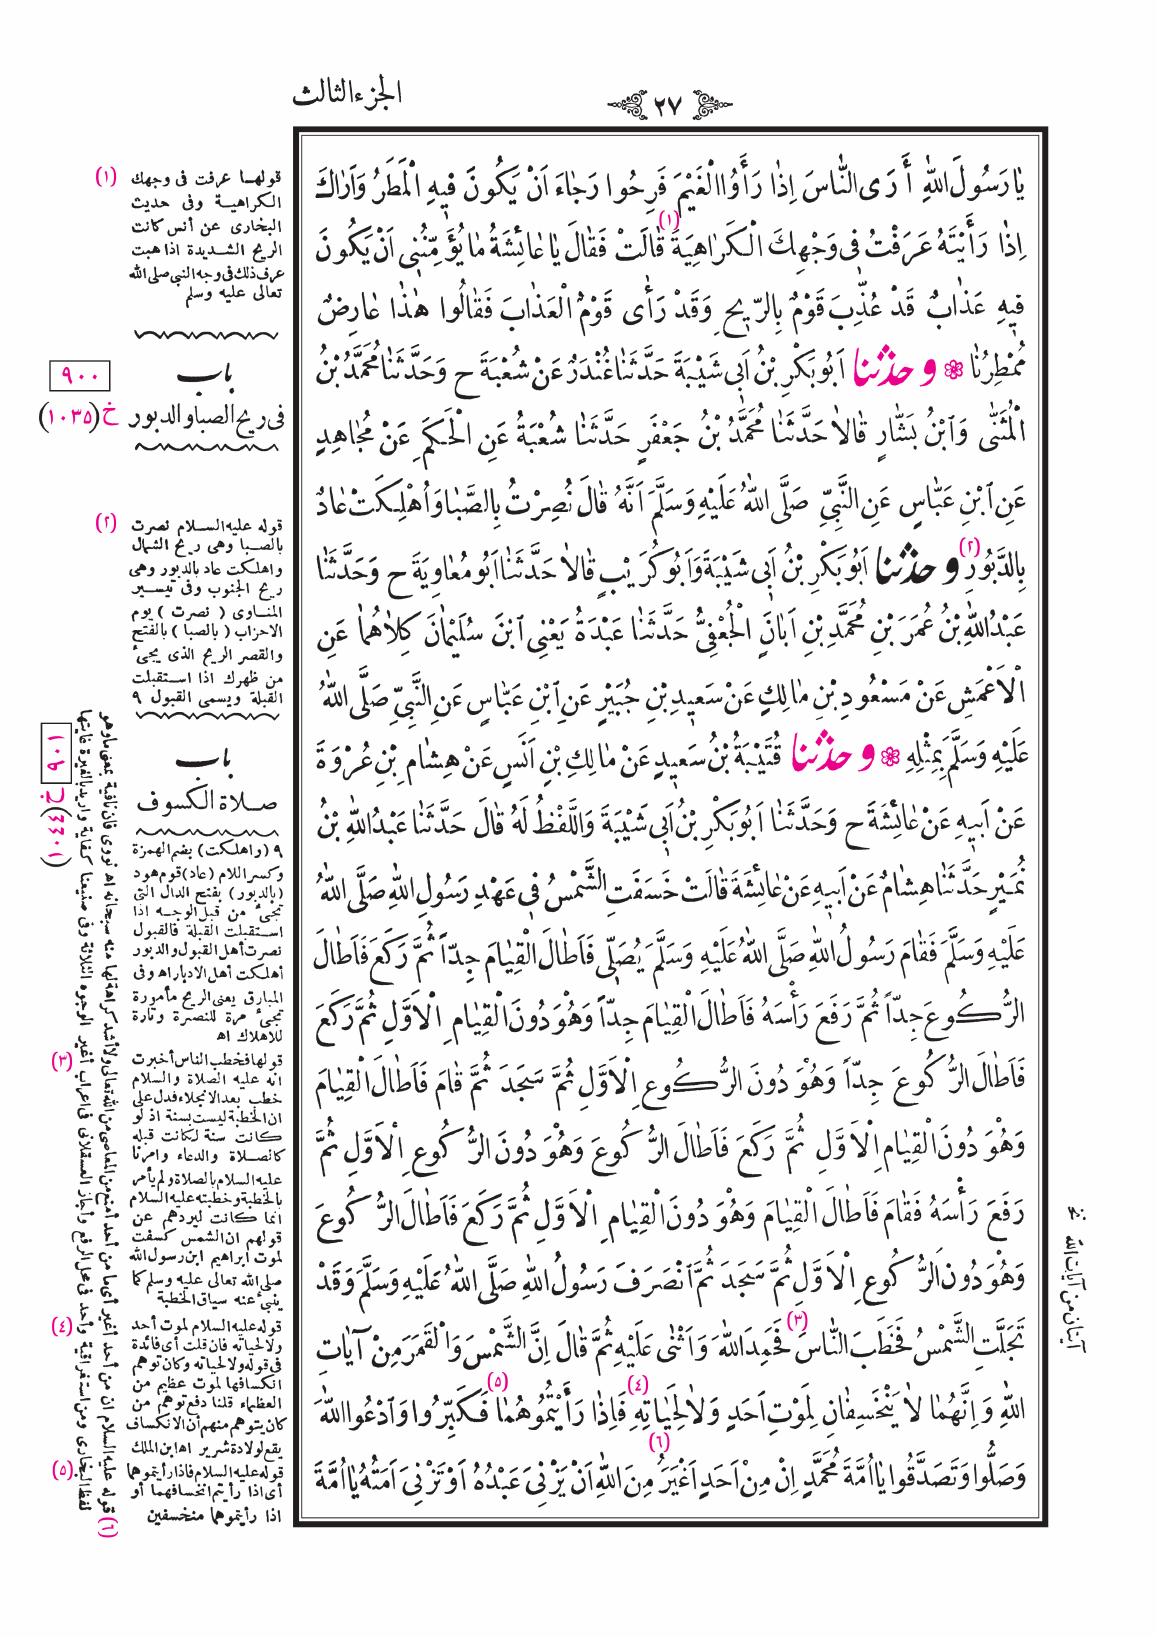 الجزء الثالث
٢٧
يَا رَسُولَ اللَّهِ أَرَى النَّاسَ إِذَا رَأَوُا الْغَيْمَ فَرِحُوا رَجَاءَ أَنْ يَكُونَ فِيهِ الْمَطَرُ وَأَرَاكَ
إِذَا رَأَيْتَهُ عَرَفْتُ فِي وَجْهِكَ الْكَرَاهِيَةَ (١) قَالَتْ فَقَالَ يَا عَائِشَةُ مَا يُؤَمِّنُنِي أَنْ يَكُونَ
فِيهِ عَذَابٌ قَدْ عُذِّبَ قَوْمٌ بِالرِّيحِ وَقَدْ رَأَى قَوْمٌ الْعَذَابَ فَقَالُوا هَذَا عَارِضٌ
مُمْطِرُنَا ۞ و حدثنا أَبُو بَكْرِ بْنُ أَبِي شَيْبَةَ حَدَّثَنَا غُنْدَرٌ عَنْ شُعْبَةَ ح وَحَدَّثَنَا مُحَمَّدُ بْنُ
الْمُثَنَّى وَابْنُ بَشَّارٍ قَالَا حَدَّثَنَا مُحَمَّدُ بْنُ جَعْفَرٍ حَدَّثَنَا شُعْبَةُ عَنِ الْحَكَمِ عَنْ مُجَاهِدٍ
عَنِ ابْنِ عَبَّاسٍ عَنِ النَّبِيِّ صَلَّى اللَّهُ عَلَيْهِ وَسَلَّمَ أَنَّهُ قَالَ نُصِرْتُ بِالصَّبَا وَأُهْلِكَتْ عَادٌ
بِالدَّبُورِ (٢) و حدثنا أَبُو بَكْرِ بْنُ أَبِي شَيْبَةَ وَأَبُو كُرَيْبٍ قَالَا حَدَّثَنَا أَبُو مُعَاوِيَةَ ح وَحَدَّثَنَا
عَبْدُ اللَّهِ بْنُ عُمَرَ بْنِ مُحَمَّدِ بْنِ أَبَانَ الْجُعْفِيُّ حَدَّثَنَا عَبْدَةُ يَعْنِي ابْنَ سُلَيْمَانَ كِلَاهُمَا عَنِ
الْأَعْمَشِ عَنْ مَسْعُودِ بْنِ مَالِكٍ عَنْ سَعِيدِ بْنِ جُبَيْرٍ عَنِ ابْنِ عَبَّاسٍ عَنِ النَّبِيِّ صَلَّى اللَّهُ
عَلَيْهِ وَسَلَّمَ بِمِثْلِهِ ۞ و حدثنا قُتَيْبَةُ بْنُ سَعِيدٍ عَنْ مَالِكِ بْنِ أَنَسٍ عَنْ هِشَامِ بْنِ عُرْوَةَ
عَنْ أَبِيهِ عَنْ عَائِشَةَ ح وَحَدَّثَنَا أَبُو بَكْرِ بْنُ أَبِي شَيْبَةَ وَاللَّفْظُ لَهُ قَالَ حَدَّثَنَا عَبْدُ اللَّهِ بْنُ
نُمَيْرٍ حَدَّثَنَا هِشَامٌ عَنْ أَبِيهِ عَنْ عَائِشَةَ قَالَتْ خَسَفَتِ الشَّمْسُ فِي عَهْدِ رَسُولِ اللَّهِ صَلَّى اللَّهُ
عَلَيْهِ وَسَلَّمَ فَقَامَ رَسُولُ اللَّهِ صَلَّى اللَّهُ عَلَيْهِ وَسَلَّمَ يُصَلِّي فَأَطَالَ الْقِيَامَ جِدًّا ثُمَّ رَكَعَ فَأَطَالَ
الرُّكُوعَ جِدًّا ثُمَّ رَفَعَ رَأْسَهُ فَأَطَالَ الْقِيَامَ جِدًّا وَهُوَ دُونَ الْقِيَامِ الْأَوَّلِ ثُمَّ رَكَعَ
فَأَطَالَ الرُّكُوعَ جِدًّا وَهُوَ دُونَ الرُّكُوعِ الْأَوَّلِ ثُمَّ سَجَدَ ثُمَّ قَامَ فَأَطَالَ الْقِيَامَ
وَهُوَ دُونَ الْقِيَامِ الْأَوَّلِ ثُمَّ رَكَعَ فَأَطَالَ الرُّكُوعَ وَهُوَ دُونَ الرُّكُوعِ الْأَوَّلِ ثُمَّ
رَفَعَ رَأْسَهُ فَقَامَ فَأَطَالَ الْقِيَامَ وَهُوَ دُونَ الْقِيَامِ الْأَوَّلِ ثُمَّ رَكَعَ فَأَطَالَ الرُّكُوعَ
وَهُوَ دُونَ الرُّكُوعِ الْأَوَّلِ ثُمَّ سَجَدَ ثُمَّ انْصَرَفَ رَسُولُ اللَّهِ صَلَّى اللَّهُ عَلَيْهِ وَسَلَّمَ وَقَدْ
تَجَلَّتِ الشَّمْسُ فَخَطَبَ النَّاسَ (٣) فَحَمِدَ اللَّهَ وَأَثْنَى عَلَيْهِ ثُمَّ قَالَ إِنَّ الشَّمْسَ وَالْقَمَرَ مِنْ آيَاتِ
اللَّهِ وَإِنَّهُمَا لَا يَنْخَسِفَانِ لِمَوْتِ أَحَدٍ وَلَا لِحَيَاتِهِ (٤) فَإِذَا رَأَيْتُمُوهُمَا (٥) فَكَبِّرُوا وَادْعُوا اللَّهَ
وَصَلُّوا وَتَصَدَّقُوا يَا أُمَّةَ مُحَمَّدٍ إِنْ مِنْ أَحَدٍ أَغْيَرَ (٦) مِنَ اللَّهِ أَنْ يَزْنِيَ عَبْدُهُ أَوْ تَزْنِيَ أَمَتُهُ يَا أُمَّةَ
آيتان من آيات الله نخ
(١) قولها عرفت فى وجهك
الكراهية وفى حديث
البخارى عن أنس كانت
الريح الشديدة اذا هبت
عرف ذلك فى وجه النبى صلى الله
تعالى عليه وسلم
باب
٩٠٠
فى ريح الصبا والدبور
خ (١٠٣٥)
(٢) قوله عليه السلام نصرت
بالصبا وهى ريح الشمال
واهلكت عاد بالدبور وهى
ريح الجنوب وفى تيسير
المناوى ( نصرت ) يوم
الاحزاب ( بالصبا ) بالفتح
والقصر الريح الذى يجىء
من ظهرك اذا استقبلت
القبلة ويسمى القبول ٩
باب
٩٠١
صلاة الكسوف
خ (١٠٤٤)
٩ (واهلكت) بضم الهمزة
وكسر اللام (عاد) قوم هود
(بالدبور) بفتح الدال التى
تجىء من قبل الوجه اذا
استقبلت القبلة فالقبول
نصرت أهل القبول والدبور
أهلكت أهل الادبار اه وفى
المبارق يعنى الريح مأمورة
تجىء مرة للنصرة وتارة
للاهلاك اه
(٣) قولها فخطب الناس أخبرت
انه عليه الصلاة والسلام
خطب بعد الانجلاء فدل على
ان الخطبة ليست بسنة اذ لو
كانت سنة لكانت قبله
كالصلاة والدعاء وامرنا
عليه السلام بالصلاة ولم يأمر
بالخطبة وخطبته عليه السلام
انما كانت ليردهم عن
قولهم ان الشمس كسفت
لموت ابراهيم ابن رسول الله
صلى الله تعالى عليه وسلم كما
ينبئ عنه سياق الخطبة
(٤) قوله عليه السلام لموت أحد
ولا لحياته فان قلت أى فائدة
فى قوله ولا لحياته وكان توهم
انكسافها لموت عظيم من
العظماء قلنا دفع توهم من
كان يتوهم منهم أن الانكساف
يقع لولادة شرير اه ابن الملك
(٥) قوله عليه السلام فاذا رأيتموهما
أى اذا رأيتم انخسافهما أو
اذا رأيتموهما منخسفين
(٦) قوله عليه السلام ان من أحد أغير أى ما من أحد أمنع من المعاصى من الله تعالى ولا أشد كراهة لها منه سبحانه اه نووى فان نافية بمعنى ما وهو
لفظ البخارى ومن استغراقية وأحد فى محل الرفع وأجاز العسقلانى فى اعراب أغير الوجوه الثلاثة وفى صنيعنا كفاية واريد بالغيرة غايتها